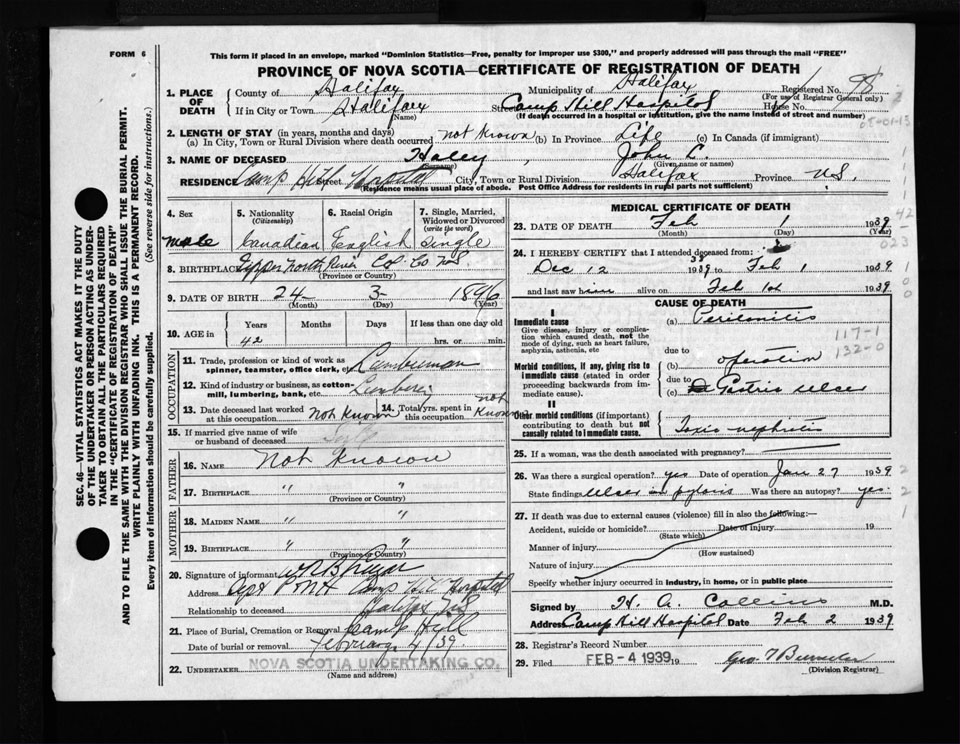 FORM 6
This form if placed in an envelope, marked "Dominion Statistics—Free, penalty for improper use $300," and properly addressed will pass through the mail "FREE"
PROVINCE OF NOVA SCOTIA—CERTIFICATE OF REGISTRATION OF DEATH
SEC. 46—VITAL STATISTICS ACT MAKES IT THE DUTY
OF THE UNDERTAKER OR PERSON ACTING AS UNDER-
TAKER TO OBTAIN ALL THE PARTICULARS REQUIRED
IN THE "CERTIFICATE OF REGISTRATION OF DEATH"
AND TO FILE THE SAME WITH THE DIVISION REGISTRAR WHO SHALL ISSUE THE BURIAL PERMIT.
WRITE PLAINLY WITH UNFADING INK. THIS IS A PERMANENT RECORD.
Every item of information should be carefully supplied. (See reverse side for instructions.)
1. PLACE OF DEATH County of Halifax Municipality of Halifax Registered No. 98
(For use of Registrar General only)
If in City or Town Halifax Street Camp Hill Hospital House No.
(Name) (If death occurred in a hospital or institution, give the name instead of street and number)
2. LENGTH OF STAY (in years, months and days)
(a) In City, Town or Rural Division where death occurred not known (b) In Province Life (c) In Canada (if immigrant)
3. NAME OF DECEASED Haley, John C.
(Surname) (Given name or names)
RESIDENCE Camp Hill Street Hospital City, Town or Rural Division Halifax Province N.S.
(Residence means usual place of abode. Post Office Address for residents in rural parts not sufficient)
4. Sex
male
5. Nationality (Citizenship)
Canadian
6. Racial Origin
English
7. Single, Married, Widowed or Divorced (write the word)
Single
8. BIRTHPLACE Upper North River Col. Co. N.S
(Province or Country)
9. DATE OF BIRTH 24 3 1896
(Month) (Day) (Year)
10. AGE in Years Months Days If less than one day old
42 hrs. or min.
OCCUPATION
11. Trade, profession or kind of work as spinner, teamster, office clerk, etc. Lumberman
12. Kind of industry or business, as cotton-mill, lumbering, bank, etc. Lumbering
13. Date deceased last worked at this occupation Not Known 14. Total yrs. spent in this occupation not Known
15. If married give name of wife or husband of deceased
FATHER
16. NAME Not Known
17. BIRTHPLACE " "
(Province or Country)
MOTHER
18. MAIDEN NAME " "
19. BIRTHPLACE " "
(Province or Country)
20. Signature of informant
Address Dept Camp Hill Hospital
Relationship to deceased Halifax NS
21. Place of Burial, Cremation or Removal Camp Hill
Date of burial or removal February 4/39.
22. UNDERTAKER NOVA SCOTIA UNDERTAKING CO.
(Name and address)
MEDICAL CERTIFICATE OF DEATH
23. DATE OF DEATH Feb 1 1939
(Month) (Day) (Year)
24. I HEREBY CERTIFY that I attended deceased from:
Dec 12 1938 to Feb 1 1939
and last saw him alive on Feb 1st 1939
CAUSE OF DEATH
I
Immediate cause
Give disease, injury or complication which caused death, not the mode of dying, such as heart failure, asphyxia, asthenia, etc
(a) Peritonitis
due to
Morbid conditions, if any, giving rise to immediate cause (stated in order proceeding backwards from immediate cause).
(b) operation
due to
(c) Gastric Ulcer
117-1
132-0
II
Other morbid conditions (if important) contributing to death but not causally related to immediate cause.
Toxic nephritis
25. If a woman, was the death associated with pregnancy?
26. Was there a surgical operation? yes Date of operation Jan 27 1939
State findings Ulcer in pyloris Was there an autopsy? yes
27. If death was due to external causes (violence) fill in also the following:—
Accident, suicide or homicide? Date of injury 19
(State which)
Manner of injury
(How sustained)
Nature of injury
Specify whether injury occurred in industry, in home, or in public place
Signed by H. A. Collins M.D.
Address Camp Hill Hospital Date Feb 2 1939
28. Registrar's Record Number
29. Filed FEB -4 1939 19
(Division Registrar)